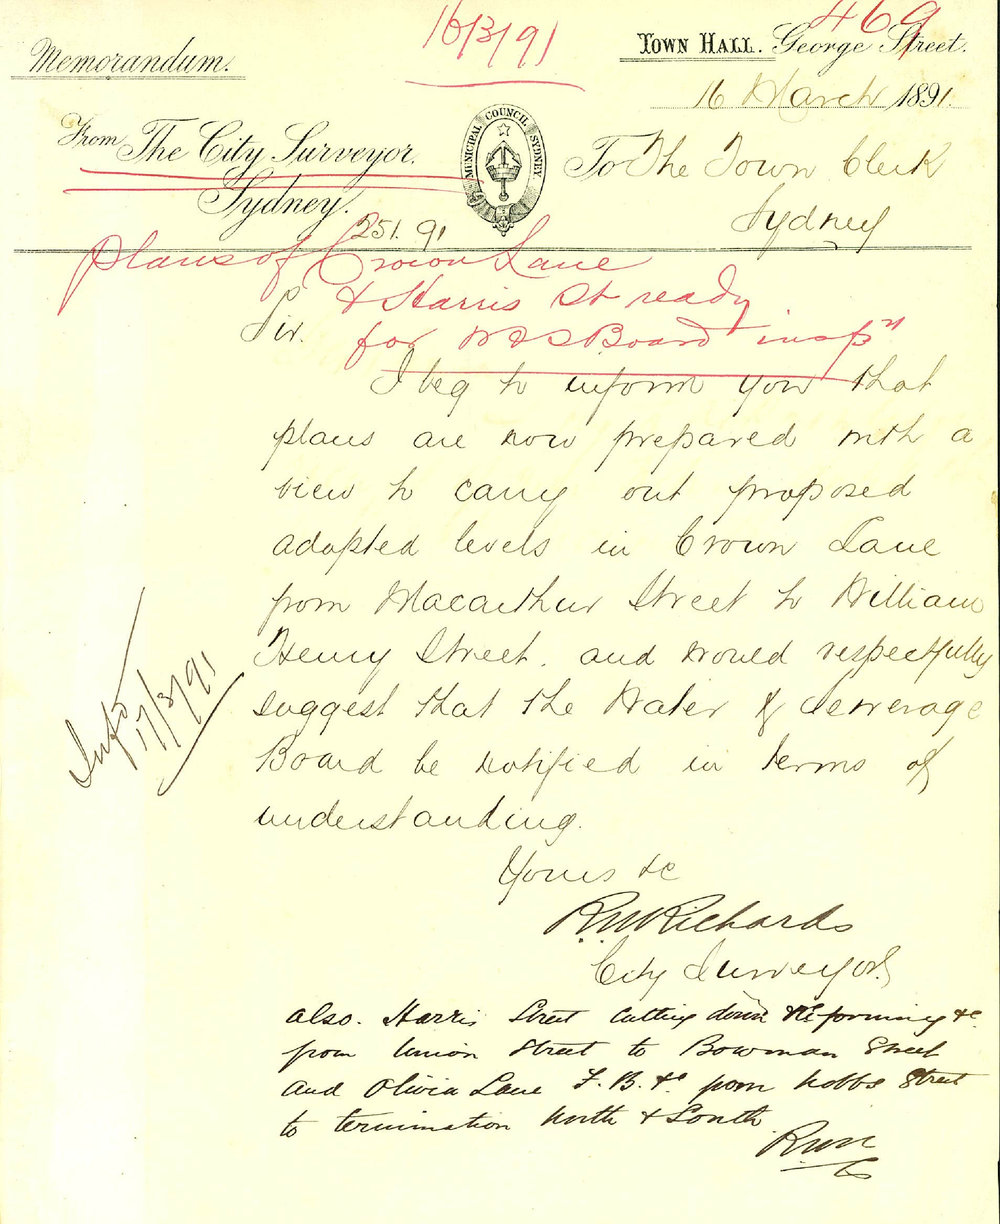 469
16/3/91
Memorandum.
Town Hall. George Street.
16 March 1891
From The City Surveyor.
Sydney.
MUNICIPAL COUNCIL SYDNEY
To The Town Clerk
Sydney
251.91
plans of Crown Lane
& Harris St ready
for W & S Board insp n
Sir.
I beg to inform you that
plans are now prepared with a
view to carry out proposed
adopted levels in Crown Lane
from Macarthur Street to William
Henry Street. and would respectfully
suggest that the Water & Sewerage
Board be notified in terms of
understanding.
17/3/91
Yours &c
R.W. Richards
City Surveyor
also. Harris Street Cutting down Re forming &c
from Union Street to Bowman Street
and Olivia Lane F. B. &c from Hobbs Street
to termination North & South
RWR